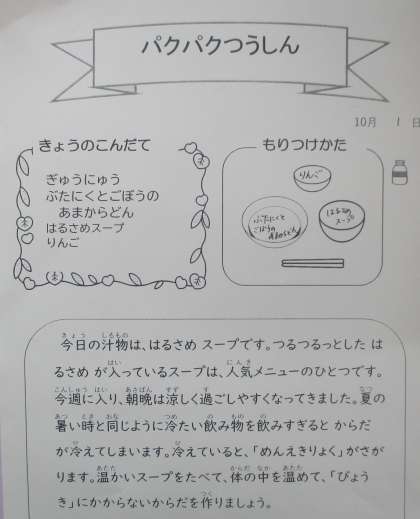 パクパクつうしん
10月 1日
きょうのこんだて
ぎゅうにゅう
ぶたにくとごぼうの
あまからどん
はるさめスープ
りんご
もりつけかた
りんご
ぶたにくと
ごぼうの
あまからどん
はるさめ
スープ
今日の汁物は、はるさめ スープです。つるつるっとした は
るさめ が入っているスープは、人気メニューのひとつです。
今週に入り、朝晩は涼しく過ごしやすくなってきました。夏の
暑い時と同じように冷たい飲み物を飲みすぎると からだ
が冷えてしまいます。冷えていると、「めんえきりょく」がさが
ります。温かいスープをたべて、体の中を温めて、「びょう
き」にかからないからだを作りましょう。